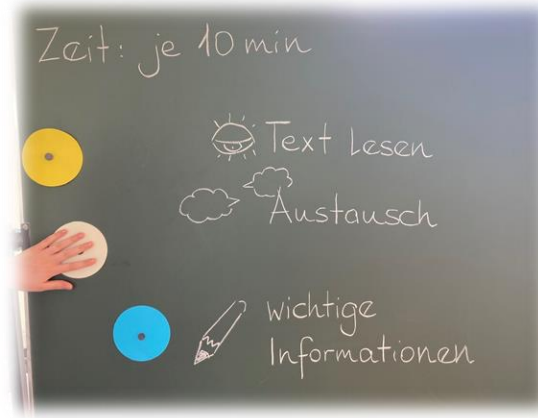 Zeit: je 10 min
Text Lesen
Austausch
wichtige
Informationen